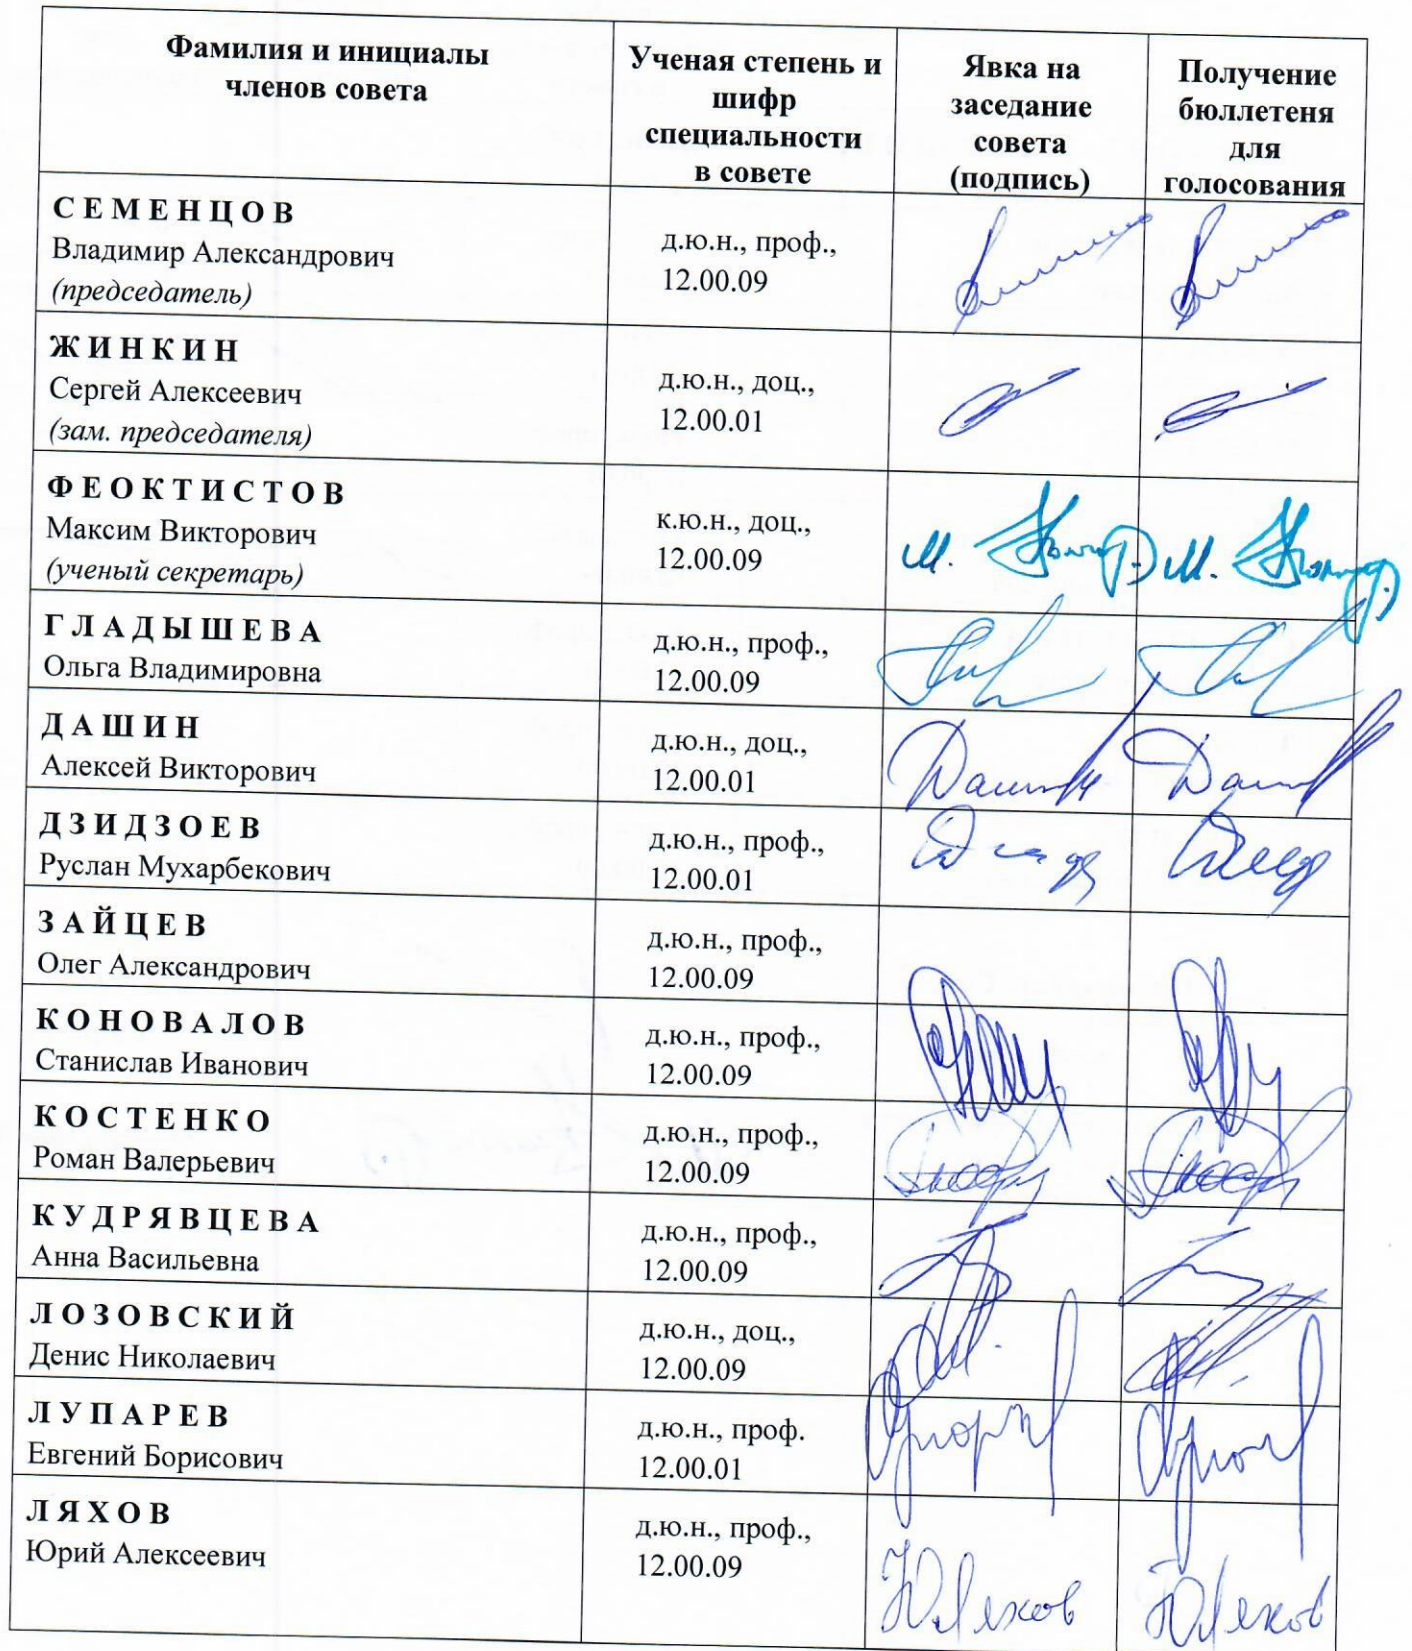 Фамилия и инициалы
членов совета
Ученая степень и
шифр
специальности
в совете
Явка на
заседание
совета
(подпись)
Получение
бюллетеня
для
голосования
С Е М Е Н Ц О В
Владимир Александрович
(председатель)
д.ю.н., проф.,
12.00.09
Ж И Н К И Н
Сергей Алексеевич
(зам. председателя)
д.ю.н., доц.,
12.00.01
Ф Е О К Т И С Т О В
Максим Викторович
(ученый секретарь)
к.ю.н., доц.,
12.00.09
Г Л А Д Ы Ш Е В А
Ольга Владимировна
д.ю.н., проф.,
12.00.09
Д А Ш И Н
Алексей Викторович
д.ю.н., доц.,
12.00.01
Д З И Д З О Е В
Руслан Мухарбекович
д.ю.н., проф.,
12.00.01
З А Й Ц Е В
Олег Александрович
д.ю.н., проф.,
12.00.09
К О Н О В А Л О В
Станислав Иванович
д.ю.н., проф.,
12.00.09
К О С Т Е Н К О
Роман Валерьевич
д.ю.н., проф.,
12.00.09
К У Д Р Я В Ц Е В А
Анна Васильевна
д.ю.н., проф.,
12.00.09
Л О З О В С К И Й
Денис Николаевич
д.ю.н., доц.,
12.00.09
Л У П А Р Е В
Евгений Борисович
д.ю.н., проф.
12.00.01
Л Я Х О В
Юрий Алексеевич
д.ю.н., проф.,
12.00.09
ЮЛяхов
ЮЛяхов